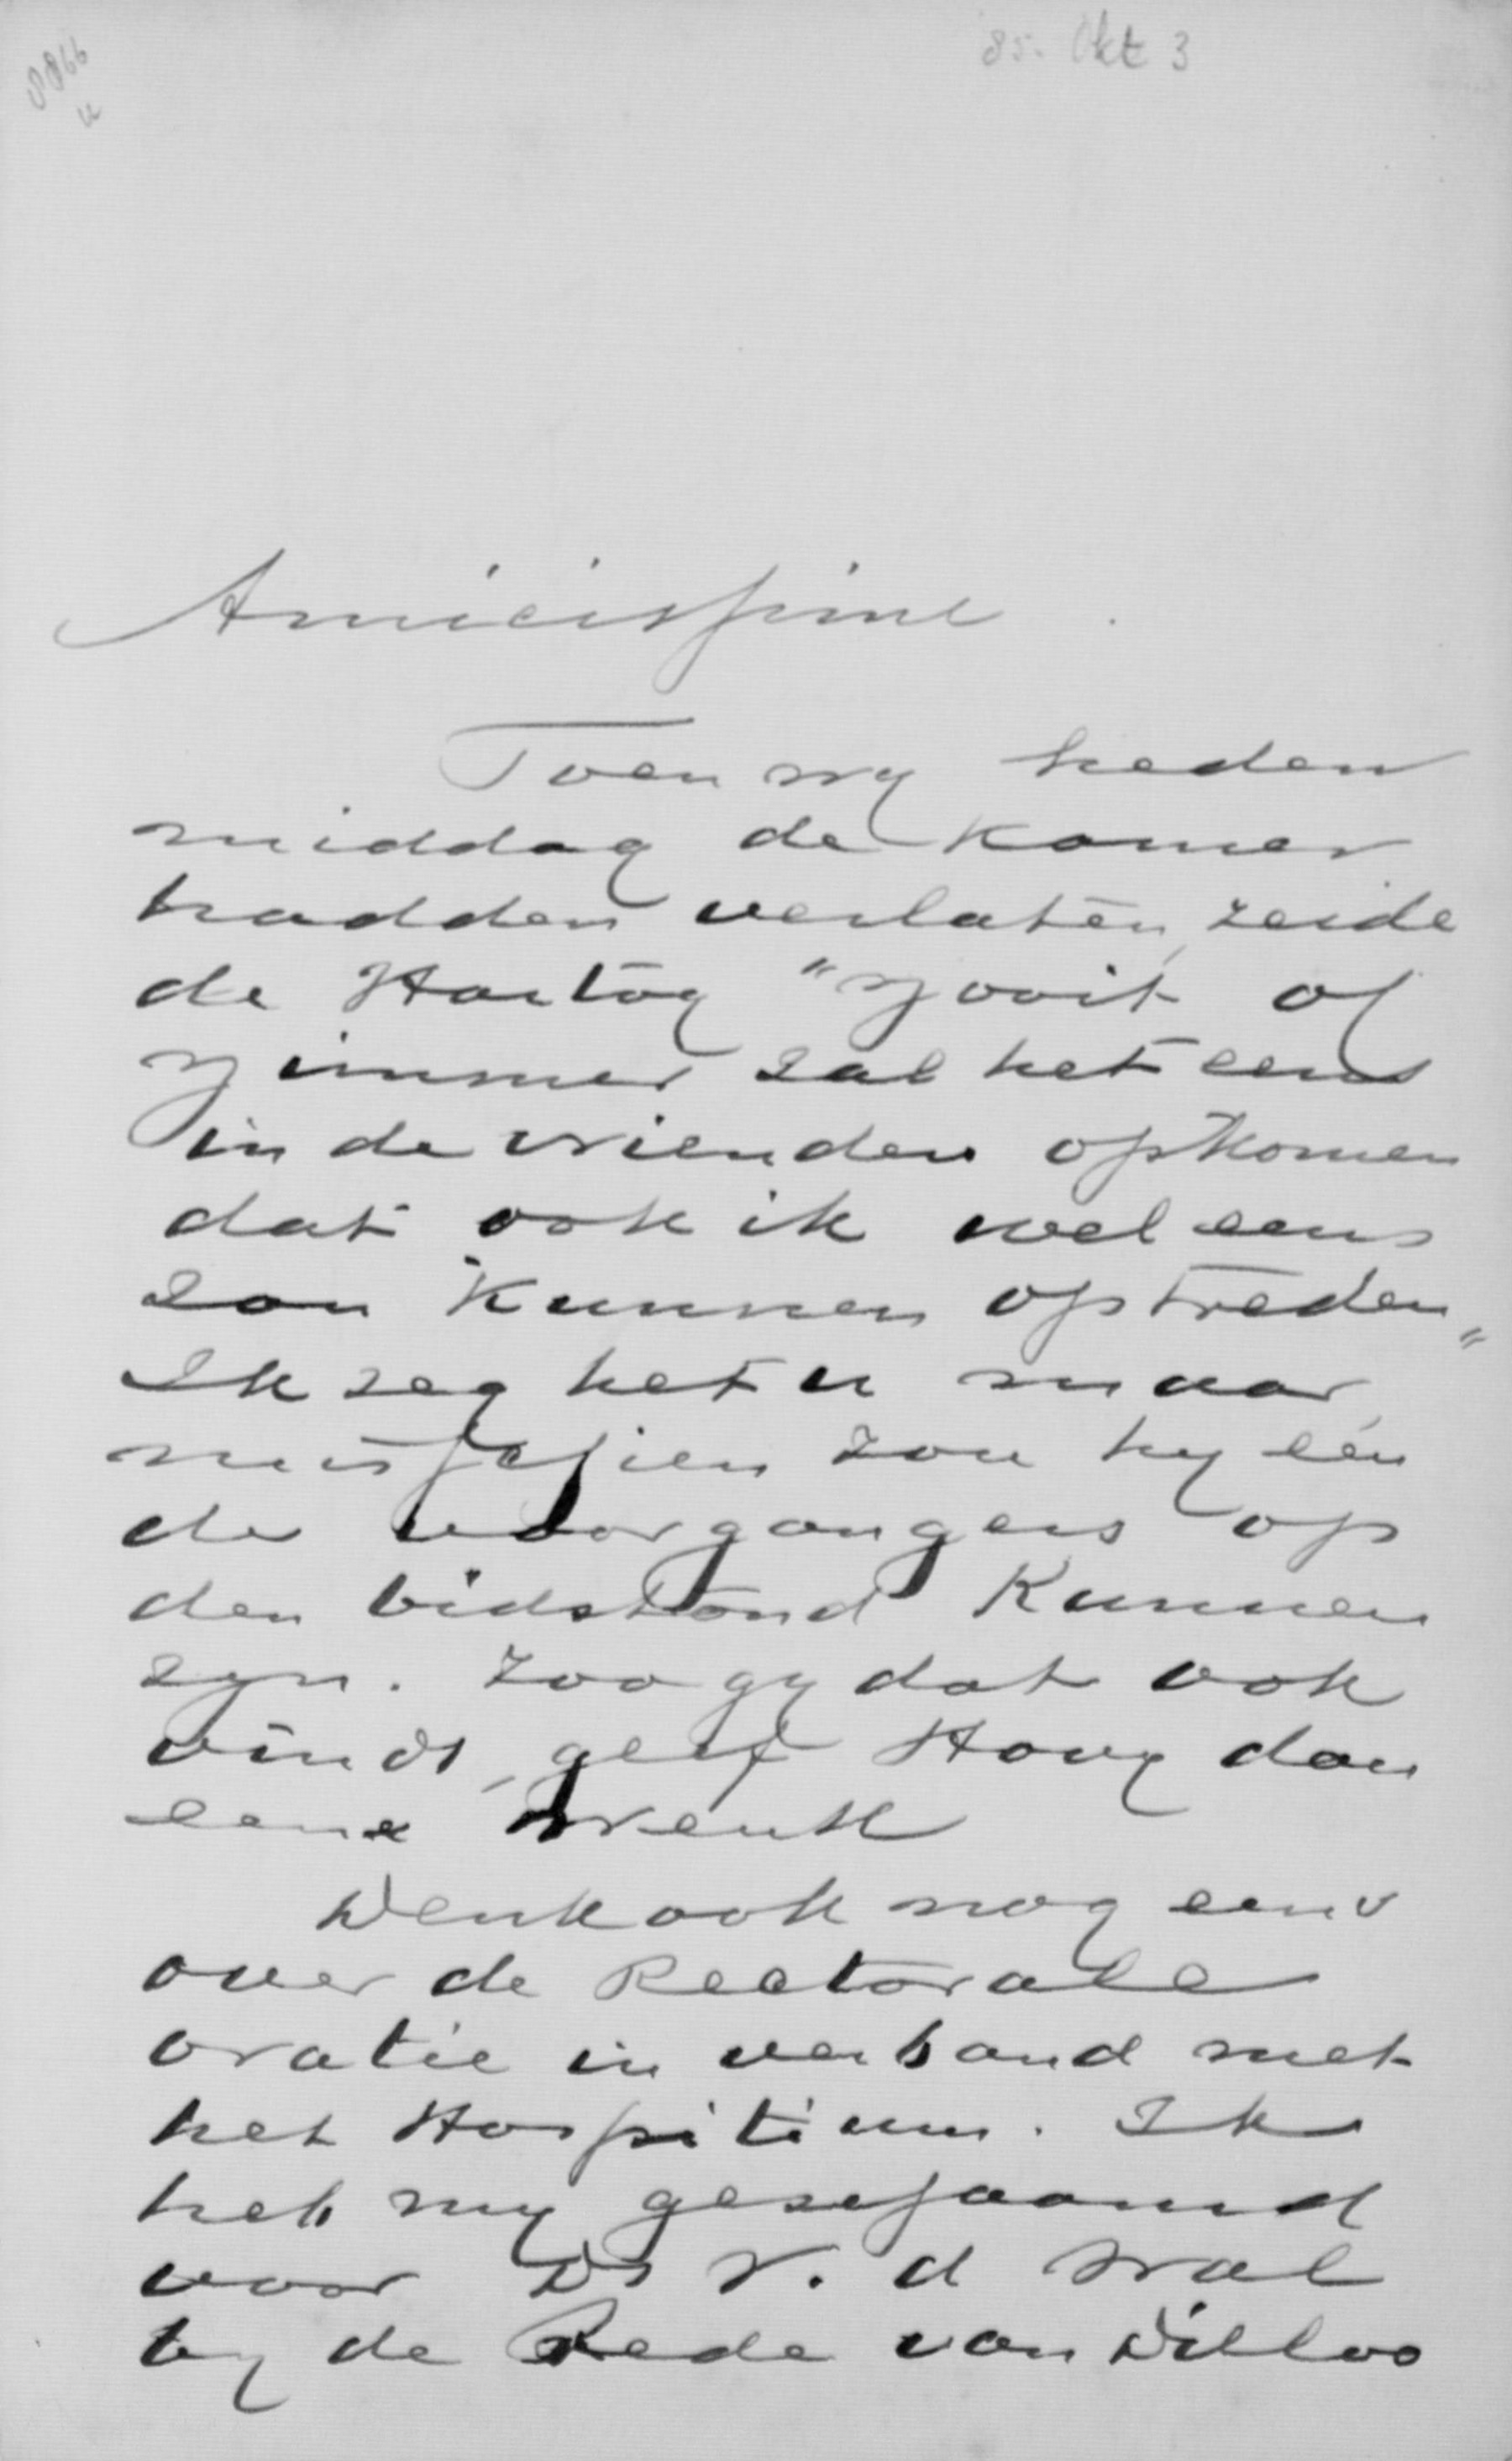 85. Okt 3
Amicissime
Toen wy heden
middag de Kamer
hadden verlaten, zeide
de Hartog "Nooit of
nimmer zal het eens
in de vrienden opkomen
dat ook ik wel eens
zou Kunnen optreden"
Ik zeg het u maar,
misschien zou hy één
der voorgangers op
den bidstond Kunnen
zyn. Zoo gy dat ook
vindt, geef Hovy dan
eene wenk
Denk ook nog eens
over de Rectorale
oratie in verband met
het Hospitium. Ik
heb my geschaamd
voor Ds V. d Wal
by de Rede van Dilloo